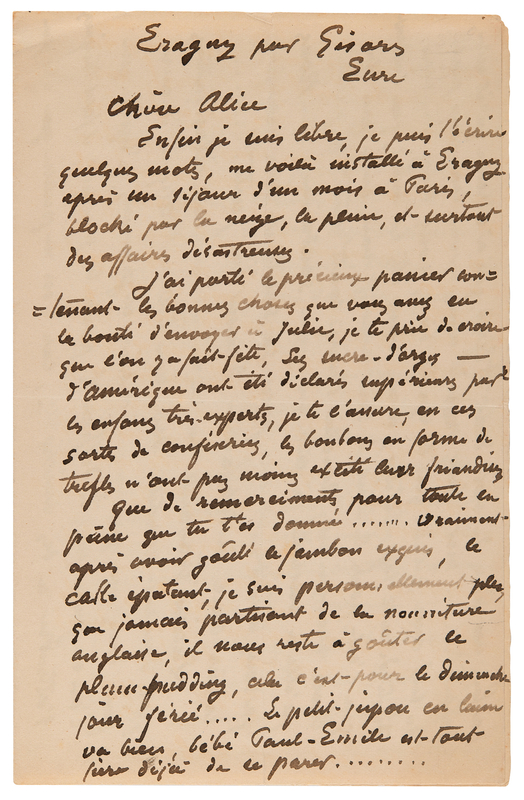 Eragny par Gisors
Eure
Chère Alice
Enfin je suis libre, je puis t'écrire
quelques mots, me voilà installé à Eragny
après un séjour d'un mois à Paris,
blocké par la neige, la pluie, et surtout
des affaires désastreuses.
J'ai porté le précieux panier con=
=tenant les bonnes choses que vous avez eu
la bonté d'envoyer à Julie, je te prie de croire
que l'on y a fait fête, les sucre-d'orges —
d'amérique ont été déclarés supérieurs par
les enfants très-experts, je te l'assure, en ces
sortes de confiseries, les bonbons en forme de
trefles n'ont pas moins excité leurs friandises
Que de remerciments pour toute la
peine que tu t'es donnée ....... vraiment
après avoir goûté le jambon exquis, le
cake épatant, je suis personnellement plus
que jamais partisant de la nourriture
anglaise, il nous reste à goûter le
plum-pudding, cela c'est pour le dimanche
jour férié..... Le petit jupon en laine
va bien, bébé Paul-Emile est tout
fière déjà de se parer.........